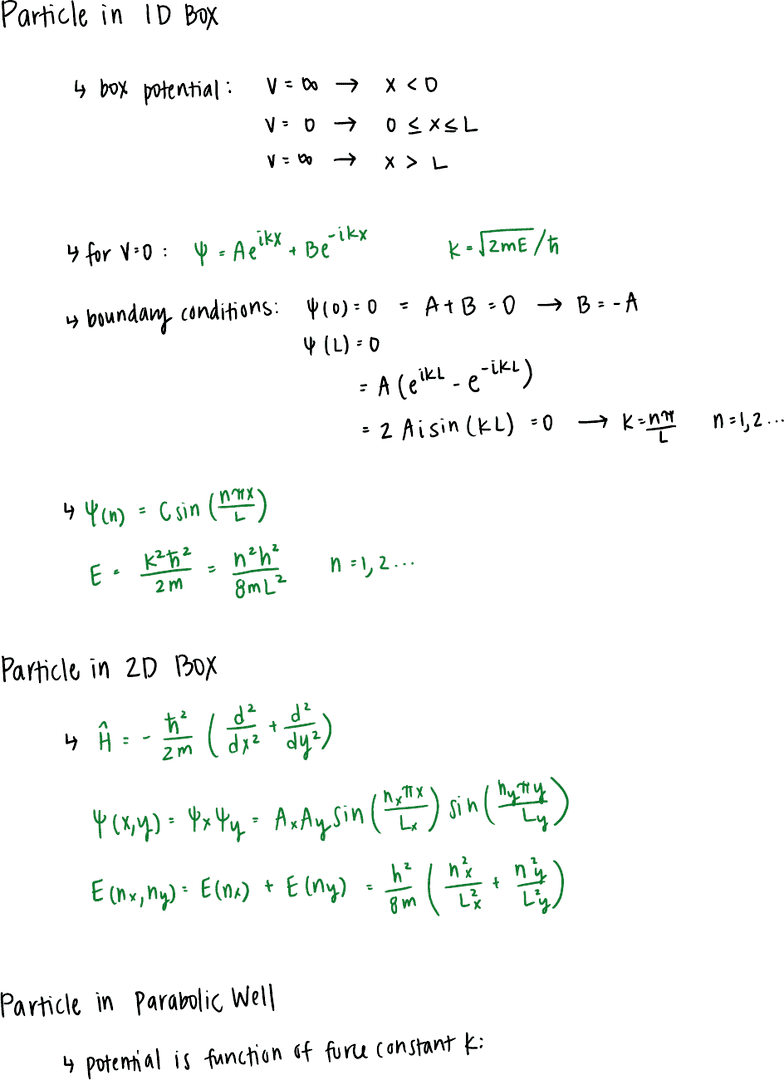 Particle in 1D Box
↳ box potential: V = ∞ → x < 0
V = 0 → 0 ≤ x ≤ L
V = ∞ → x > L
↳ for V=0: Ψ = Ae^{ikx} + Be^{-ikx} k = √(2mE)/ħ
↳ boundary conditions: Ψ(0)=0 = A+B = 0 → B = -A
Ψ(L)=0
= A(e^{ikL} - e^{-ikL})
= 2Ai sin(kL) = 0 → k = nπ/L n = 1, 2 ...
↳ Ψ(n) = C sin(nπx/L)
E = k²ħ²/2m = n²h²/8mL² n = 1, 2 ...
Particle in 2D Box
↳ Ĥ = - ħ²/2m (d²/dx² + d²/dy²)
Ψ(x,y) = Ψ_xΨ_y = A_xA_y sin(n_xπx/L_x) sin(n_yπy/L_y)
E(n_x,n_y) = E(n_x) + E(n_y) = h²/8m (n_x²/L_x² + n_y²/L_y²)
Particle in Parabolic Well
↳ potential is function of force constant k: